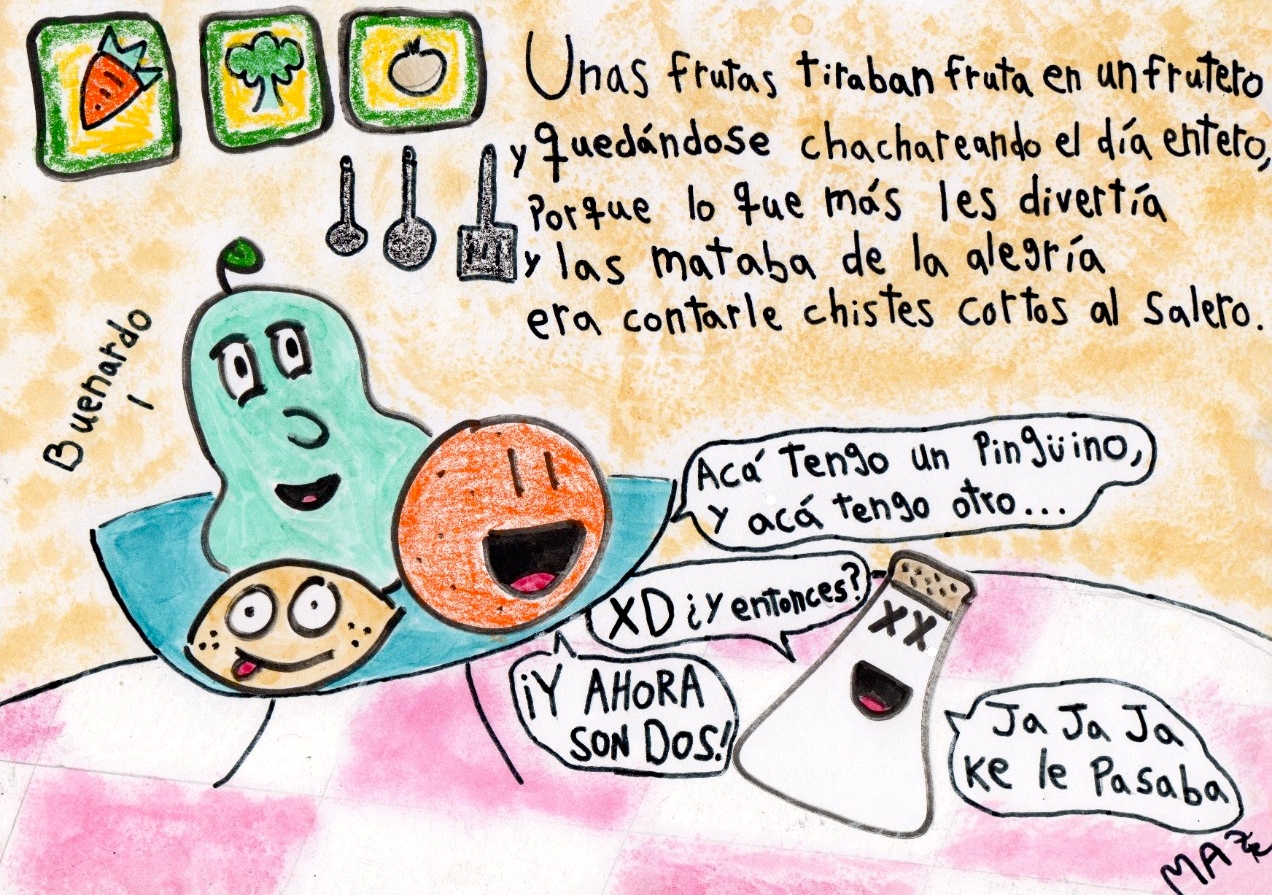 Unas frutas tiraban fruta en un frutero
y quedándose chachareando el día entero,
Porque lo que más les divertía
y las mataba de la alegría
era contarle chistes cortos al Salero.
Buenardo
Acá Tengo un Pingüino,
y acá tengo otro...
XD ¿y entonces?
¡Y AHORA
SON DOS!
Ja Ja Ja
Ke le Pasaba